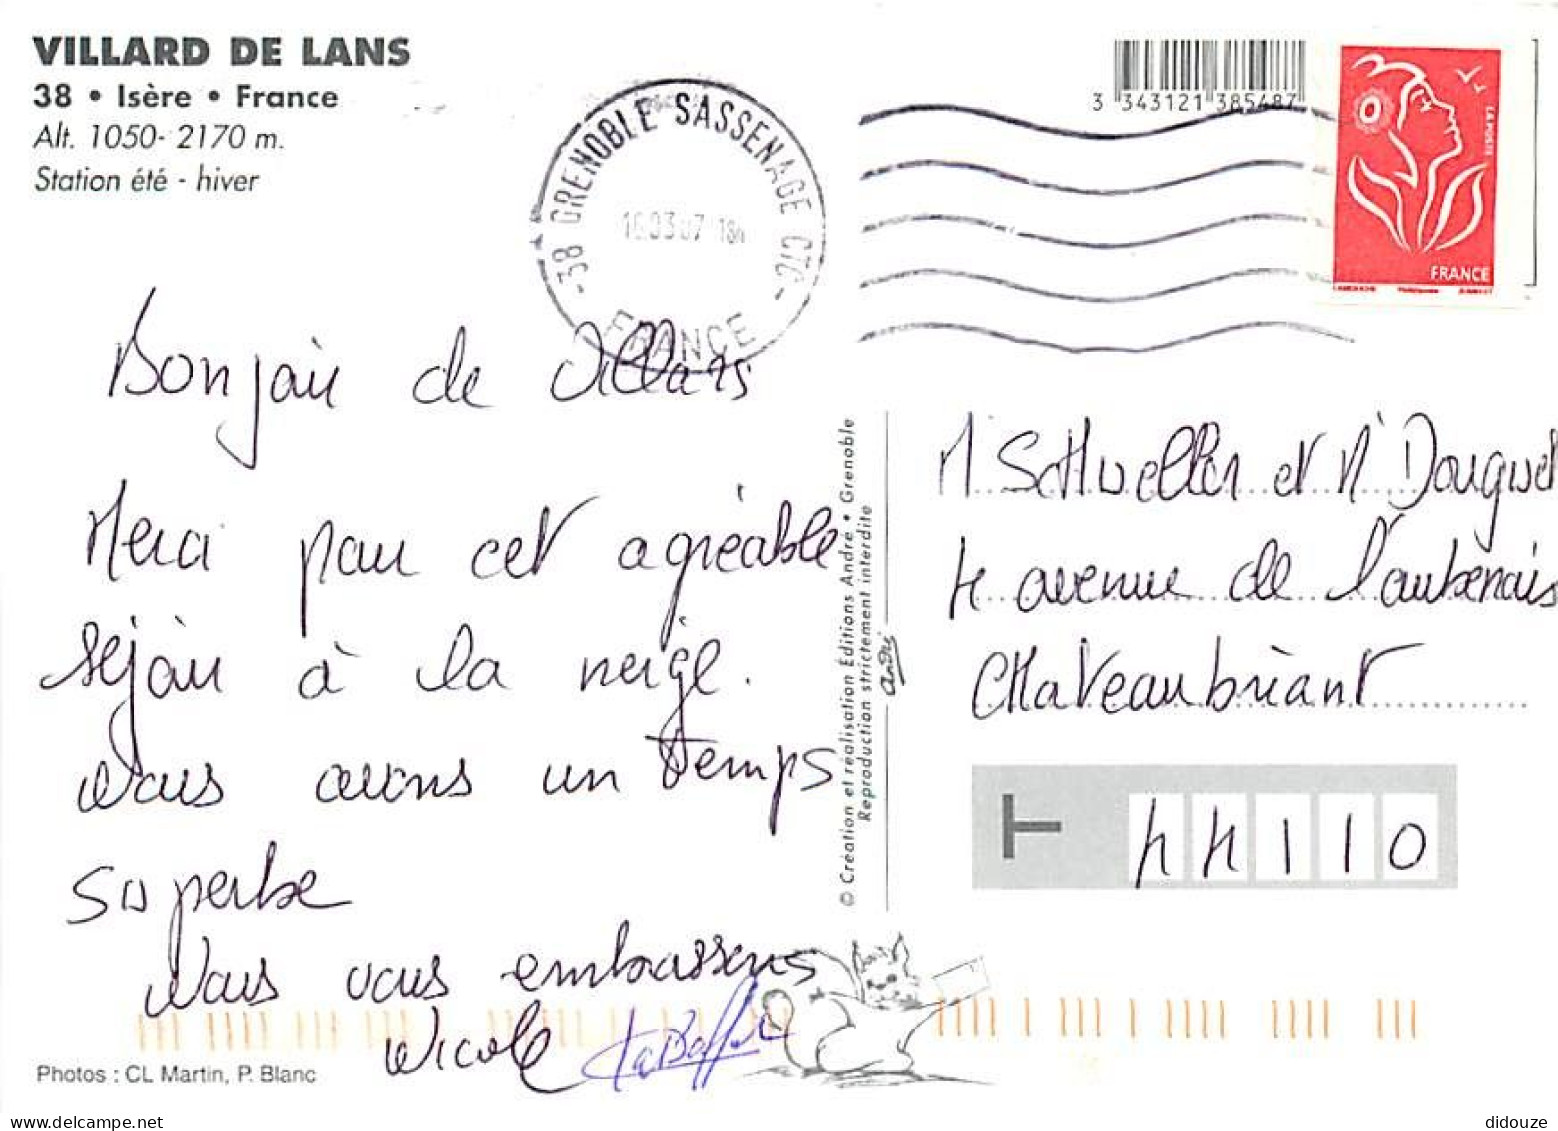 VILLARD DE LANS
38 • Isère • France
Alt. 1050- 2170 m.
Station été - hiver
38 GRENOBLE SASSENAGE CTC
16.03.07 18h
FRANCE
3 343121 385487
LA POSTE
FRANCE
Bonjour de Villars
Merci pour cet agréable
séjour à la neige.
Nous avons un temps
superbe
Nous vous embrassons
Nicole
M SCHweller et M Douguet
4 avenue de l'aubenais
CHateaubriant
44110
© Création et réalisation Éditions André • Grenoble
Reproduction strictement interdite
André
Photos : CL Martin, P. Blanc
didouze